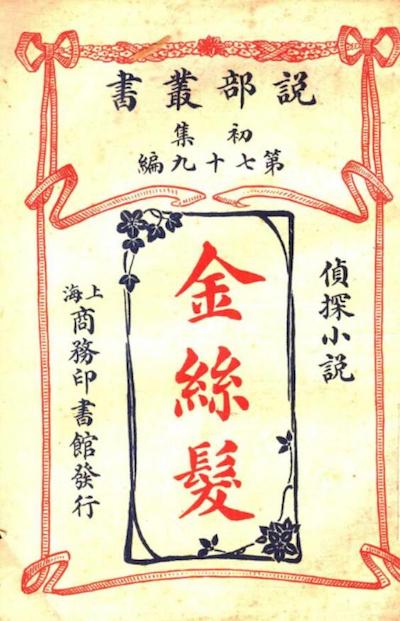 説部叢書
初集
第七十九編
偵探小説
金絲髮
上海商務印書館發行